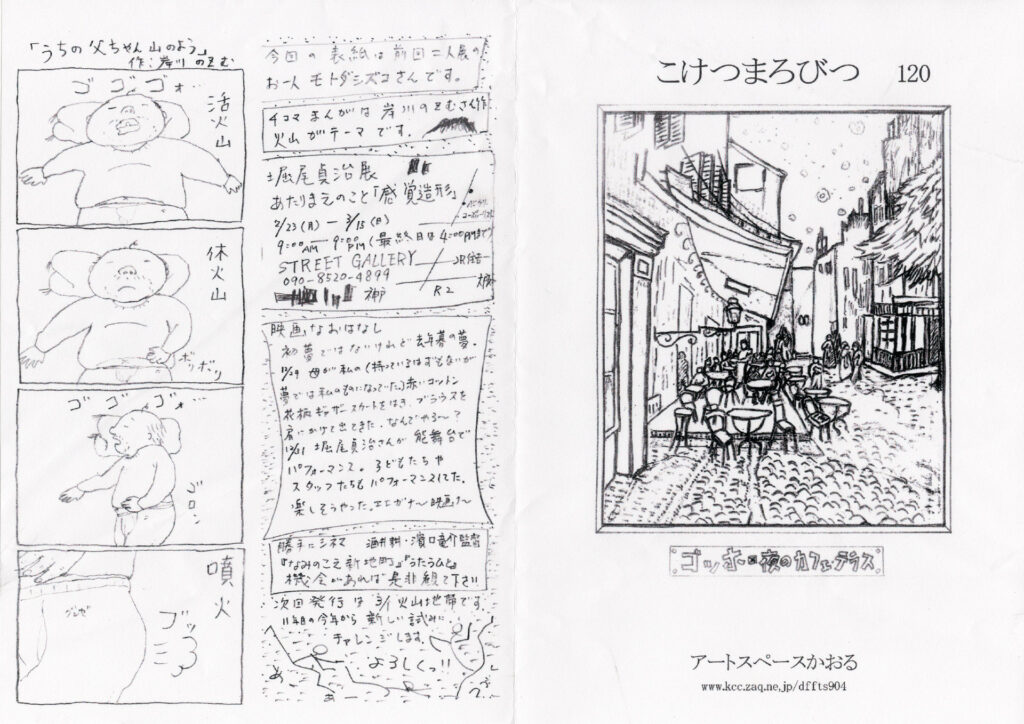 「うちの父ちゃん山のよう」
作:岸川 のぞむ
ゴゴゴゴォ…
活火山
休火山
ボリボリ
ゴゴゴォ…
ゴロン
噴火
グンゼ
ブッ
今回の表紙は前回二人展の
お一人 モトダシズコさんです。
4コマまんがは岸川のぞむさん作
火山がテーマです。
堀尾貞治展
あたりまえのこと「感覚造形」
2/23(月) ― 3/15(日)
9:00AM ― 9:00PM (最終日は4:00PMまで)
STREET GALLERY
090-8520-4899
神戸
R2
映画なおはなし
初夢ではないけれど去年暮の夢。
12/29 母が私の(持っているはずもないが
夢では私のものになっていた)赤いコットン
花柄ギャザースカートをはき、ブラウスを
肩にかけて出てきた。なんでやろ〜?
12/31 堀尾貞治さんが能舞台で
パフォーマンス。子どもたちや
スタッフたちもパフォーマンスしてた。
楽しそうやった。エエガナ〜映画ナ〜
勝手にシネマ 酒井耕・濱口竜介監督
『なみのこえ新地町』『うたうひと』
機会があれば是非観て下さい
次回発行は3/1 火山地帯です。
11年目の今年から新しい試みに
チャレンジします。
よろしくっ!!
こけつまろびつ 120
ゴッホ 夜のカフェテラス
アートスペースかおる
www.kcc.zaq.ne.jp/dffts904